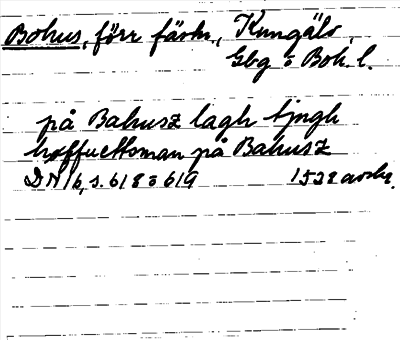 Bohus, förr fästn., Kungälv,
Gbg o Boh. l.
på Bahusz lagh tjngh
høffuettsman på Bahusz
DN 16, s. 618 o 619 1532 avskr.